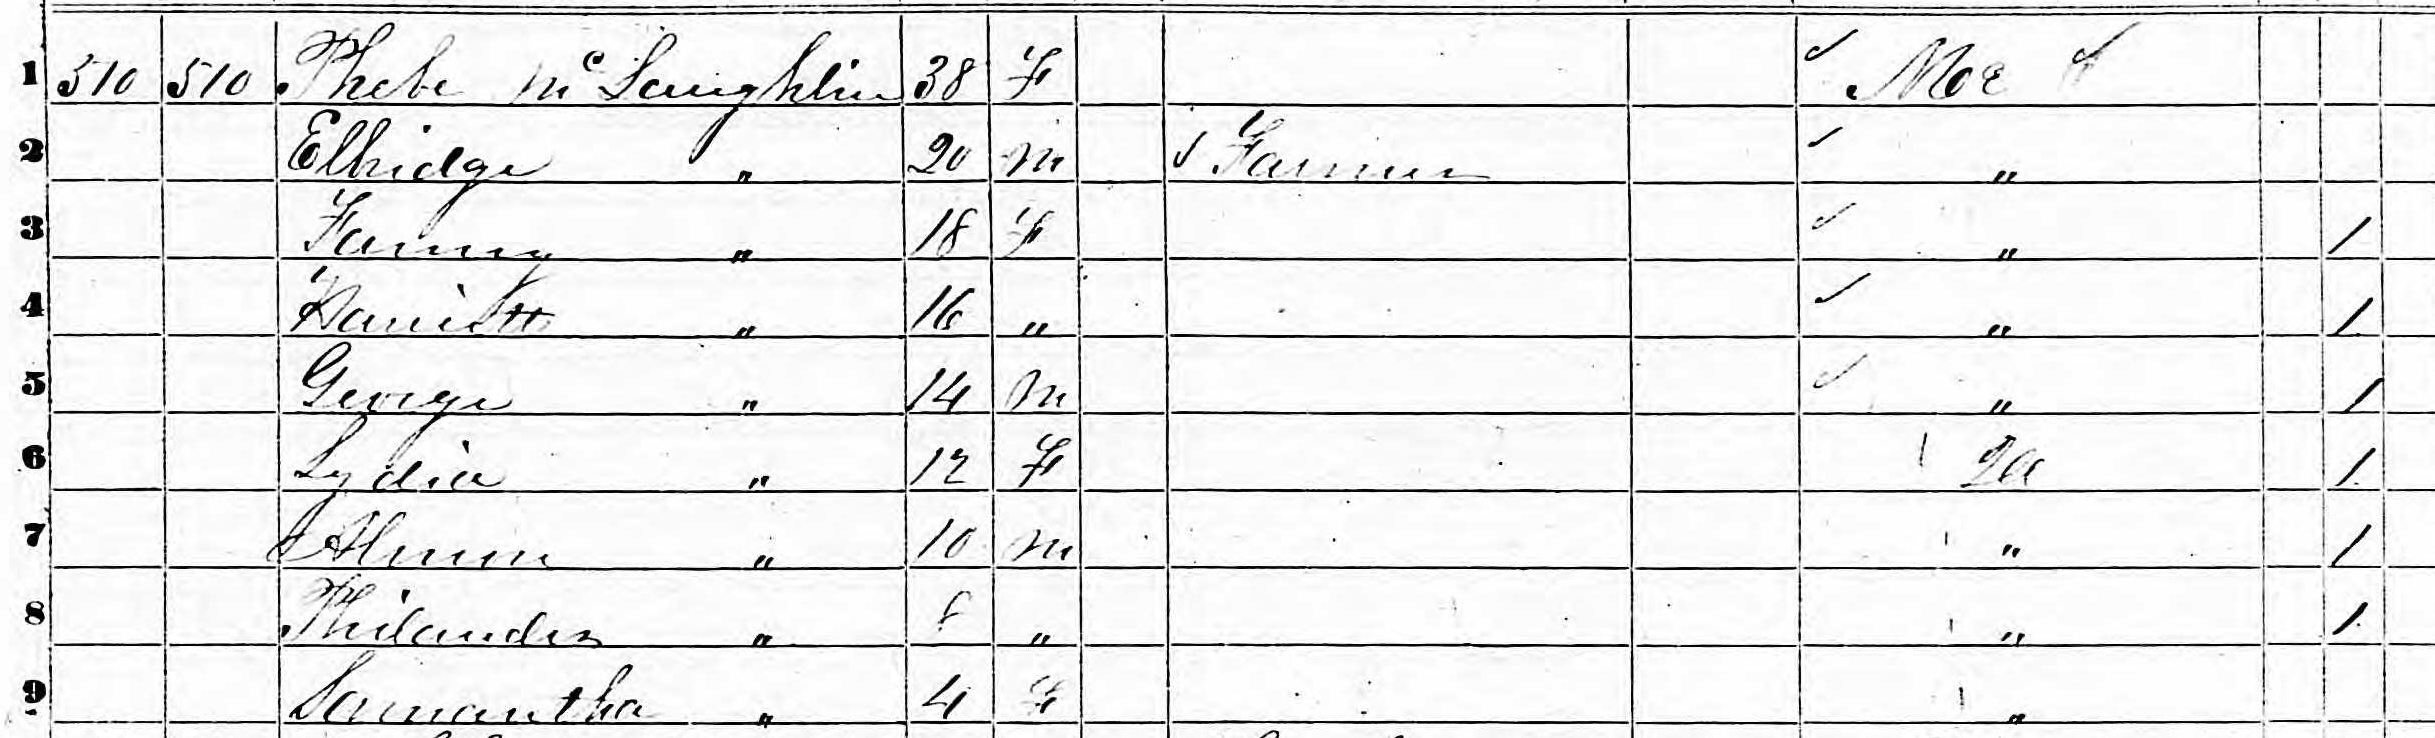 1 510 510 Phebe Mc Laughlin 38 F Moe
2 Elbridge " 20 M Farmer "
3 Fanny " 18 F " 1
4 Harriett " 16 " " 1
5 George " 14 M " 1
6 Lydia " 12 F Ia 1
7 " 10 M " 1
8 Philander " 8 " " 1
9 Samantha " 4 F "